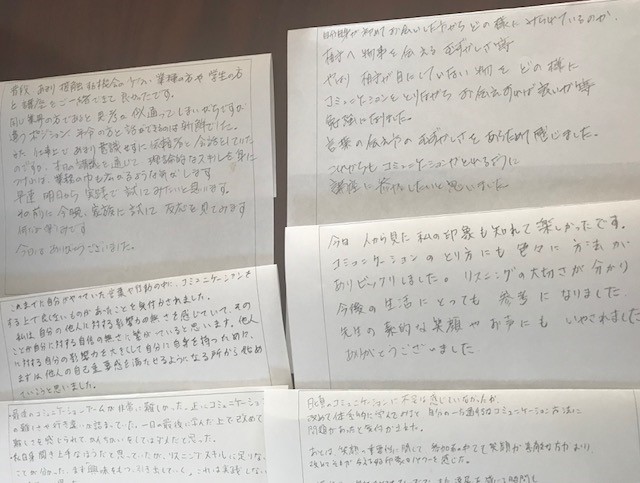 普段あまり接触する機会の少ない業種の方や学生の方
と講座をご一緒できて良かったです。
同じ業界の方であると思考も似通ってしまいがちですが
違うポジション、年令の方と話ができるのは新鮮でした。
また、仕事上であまり意識せずに依頼者と会話をしていた
のですが、本日の講義を通じて理論的なスキルを身に
つければ、業務の巾も広がるような気がします
早速明日から実践で試してみたいと思います。
その前に今晩、家族に試して反応を見てみます
今日はありがとうございました。
これまで自分がやっていた言葉や行動の中に、コミュニケーションを
する上で良くないものがあったことを気付かされました。
私は自分の他人に対する影響力の無さを感じていて、その
ことが自分に対する自信の無さに繋がっていると思います。他人
に対する自分の影響力を大きくして自分に自身を持つために、
まずは他人の自己重要感を満たせるようになる所から始め
ていこうと思いました。
コミュニケーションゲームが非常に難しかった。正にコミュニケーション
の難しさや行き違いが詰まっていた。一日の最後に学んだ上で改めて
難しさを感じとられてかんちがいをしてはダメだと思った。
私自身聞き上手なほうだと思っていたが、リスニングスキルに足りない
ことが分かった。まず興味をもつ、引き出していく、これは実践しない
初めてお会いした方からどの様にみられているのか、
相手へ物事を伝えるむずかしさ等
やはり相手が目にしていない物をどの様に
コミュニケーションをとりながらお伝えすれば良いか等
勉強になりました。
言葉の伝え方のむずかしさをあらためて感じました。
コミュニケーションがとれるように
講座に参加したいと思いました。
今日人から見た私の印象も知れて楽しかったです。
コミュニケーションのとり方にも色々に方法が
ありビックリしました。リスニングの大切さが分かり
今後の生活にとっても参考になりました
先生の素的な笑顔やお声にもいやされました
ありがとうございました
日常のコミュニケーションに不安は感じないものだが、
改めて体系的に学んでみると自分の一方通行なコミュニケーション方法に
問題があったと気付かされた。